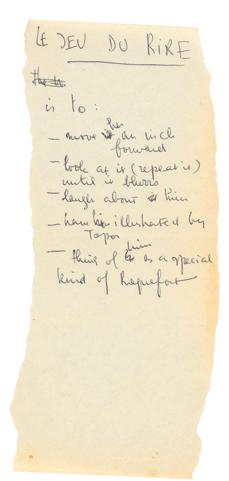 LE JEU DU RIRE
is to:
— move her an inch
forward
— look at it (repeat it)
until it blurs
— laugh about him
— have him illustrated by
Topor
— think of him as a special
kind of Roquefort